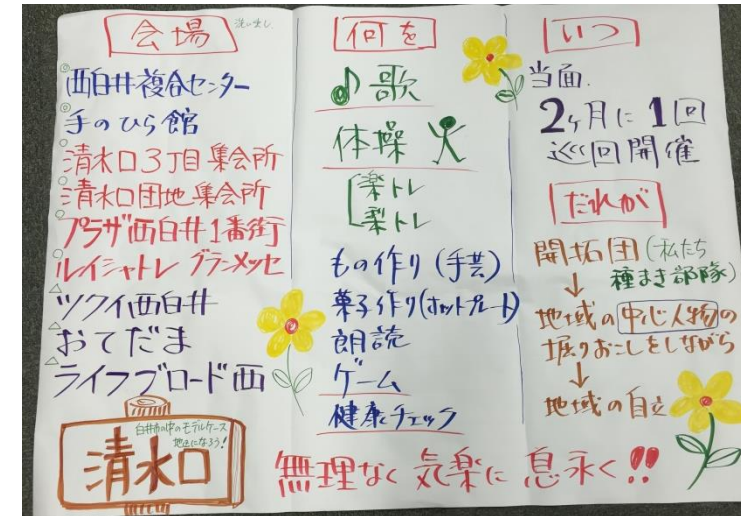 会場 洗い出し
◎西白井複合センター
◎手のひら館
○清水口3丁目集会所
○清水口団地集会所
○プラザ西白井1番街
○ルイシャトレ グランメッセ
△ツクイ西白井
△おてだま
△ライフブロード西
白井市の中のモデルケース
地区になろう!
清水口
何を
歌
体操
楽トレ
梨トレ
もの作り(手芸)
菓子作り(ホットプレート)
朗読
ゲーム
健康チェック
いつ
当面.
2ヶ月に1回
巡回開催
だれが
開拓団(私たち
種まき部隊)
↓
地域の中心人物の
堀りおこしをしながら
↓
地域の自立
無理なく 気楽に 息永く!!